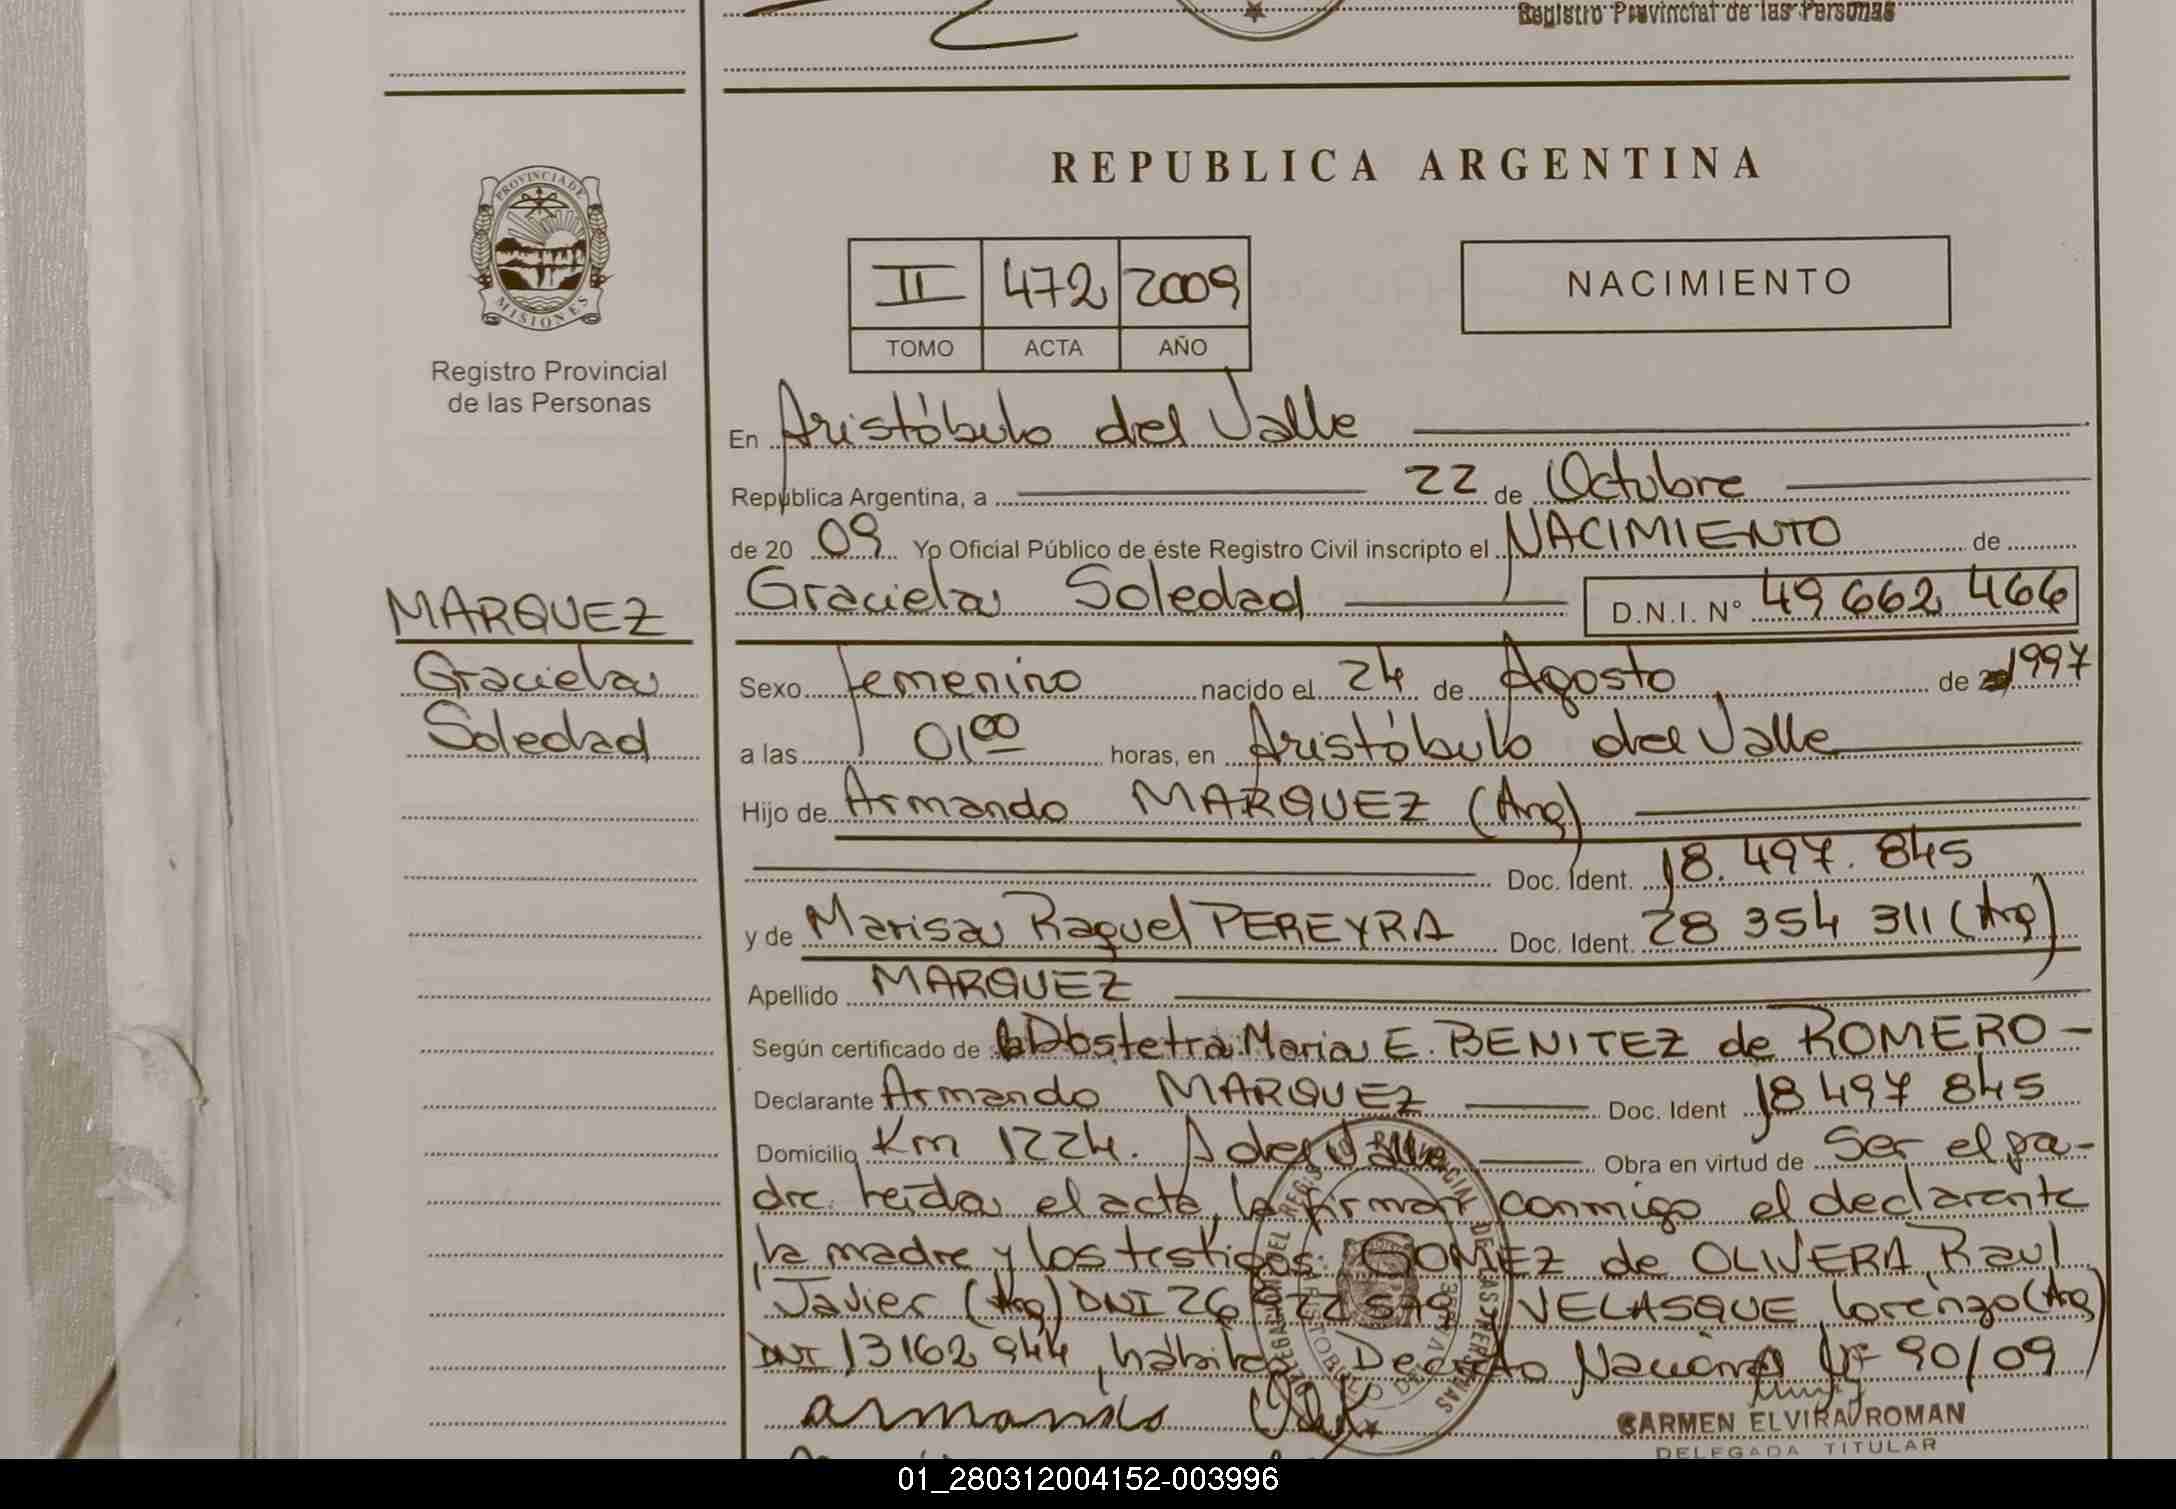 Registro Provincial de las Personas
REPUBLICA ARGENTINA
PROVINCIA DE
MISIONES
Registro Provincial
de las Personas
II 472 2009
TOMO ACTA AÑO
NACIMIENTO
En Aristóbulo del Valle
República Argentina, a 22 de Octubre
de 20 09 Yo Oficial Público de éste Registro Civil inscripto el NACIMIENTO de
MARQUEZ
Graciela
Soledad
Graciela Soledad D.N.I. N° 49 662 466
Sexo femenino nacido el 24 de Agosto de 1997
a las 01 00 horas, en Aristóbulo del Valle
Hijo de Armando MARQUEZ (Arg)
Doc. Ident. 18.497.845
y de Marisa Raquel PEREYRA Doc. Ident. 28 354 311 (Arg)
Apellido MARQUEZ
Según certificado de Obstetra Maria E. BENITEZ de ROMERO -
Declarante Armando MARQUEZ Doc. Ident 18 497 845
Domicilio Km 1224. A del Valle Obra en virtud de Ser el pa-
dre. leída el acta, la firman conmigo el declarante
la madre y los testigos: GOMEZ de OLIVERA, Raul
Javier (Arg) DNI 26 VELASQUE Lorenzo (Arg)
DNI 13162 944, Decreto Nacional Nº 90/09
armando
CARMEN ELVIRA ROMAN
DELEGADA TITULAR
01_280312004152-003996